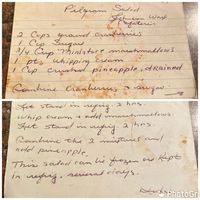 Pilgrim Salad
Johnson Wax
Cafeteria
2 Cups ground cranberries
1 Cup Sugar
3/4 Cup Miniature marshmallows
1 pts whipping cream
1 Cup crushed pineapple, drained
Combine cranberries & sugar.
Let stand in refrig 2 hrs.
Whip cream & add marshmallows.
Let stand in refrig 2 hrs.
Combine the 2 mixtures and
add pineapple.
This salad can be frozen or kept
in refrig. several days.
PhotoGr